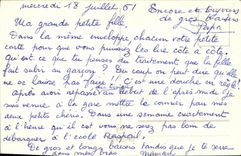 mercredi 18 juillet 61
Encore et toujours
de gros baisers
Papa
Ma grande petite fille,
Dans la même enveloppe chacun votre petite
carte pour que vous puissiez les lire côte à côte,
qu'est ce que tu penses du traitement que la fille
fait subir au garçon du coup on peut dire qu'elle
ne
Après avoir repassé début d'après midi je
suis venue à la gare mettre le courrier pour mes
deux petits chéris. Dans une semaine exactement
à l'heure qu'il est vous ne serez pas loin de
débarquer à l'école
De gros et longs baisers tandis que je te serre
dans mes bras